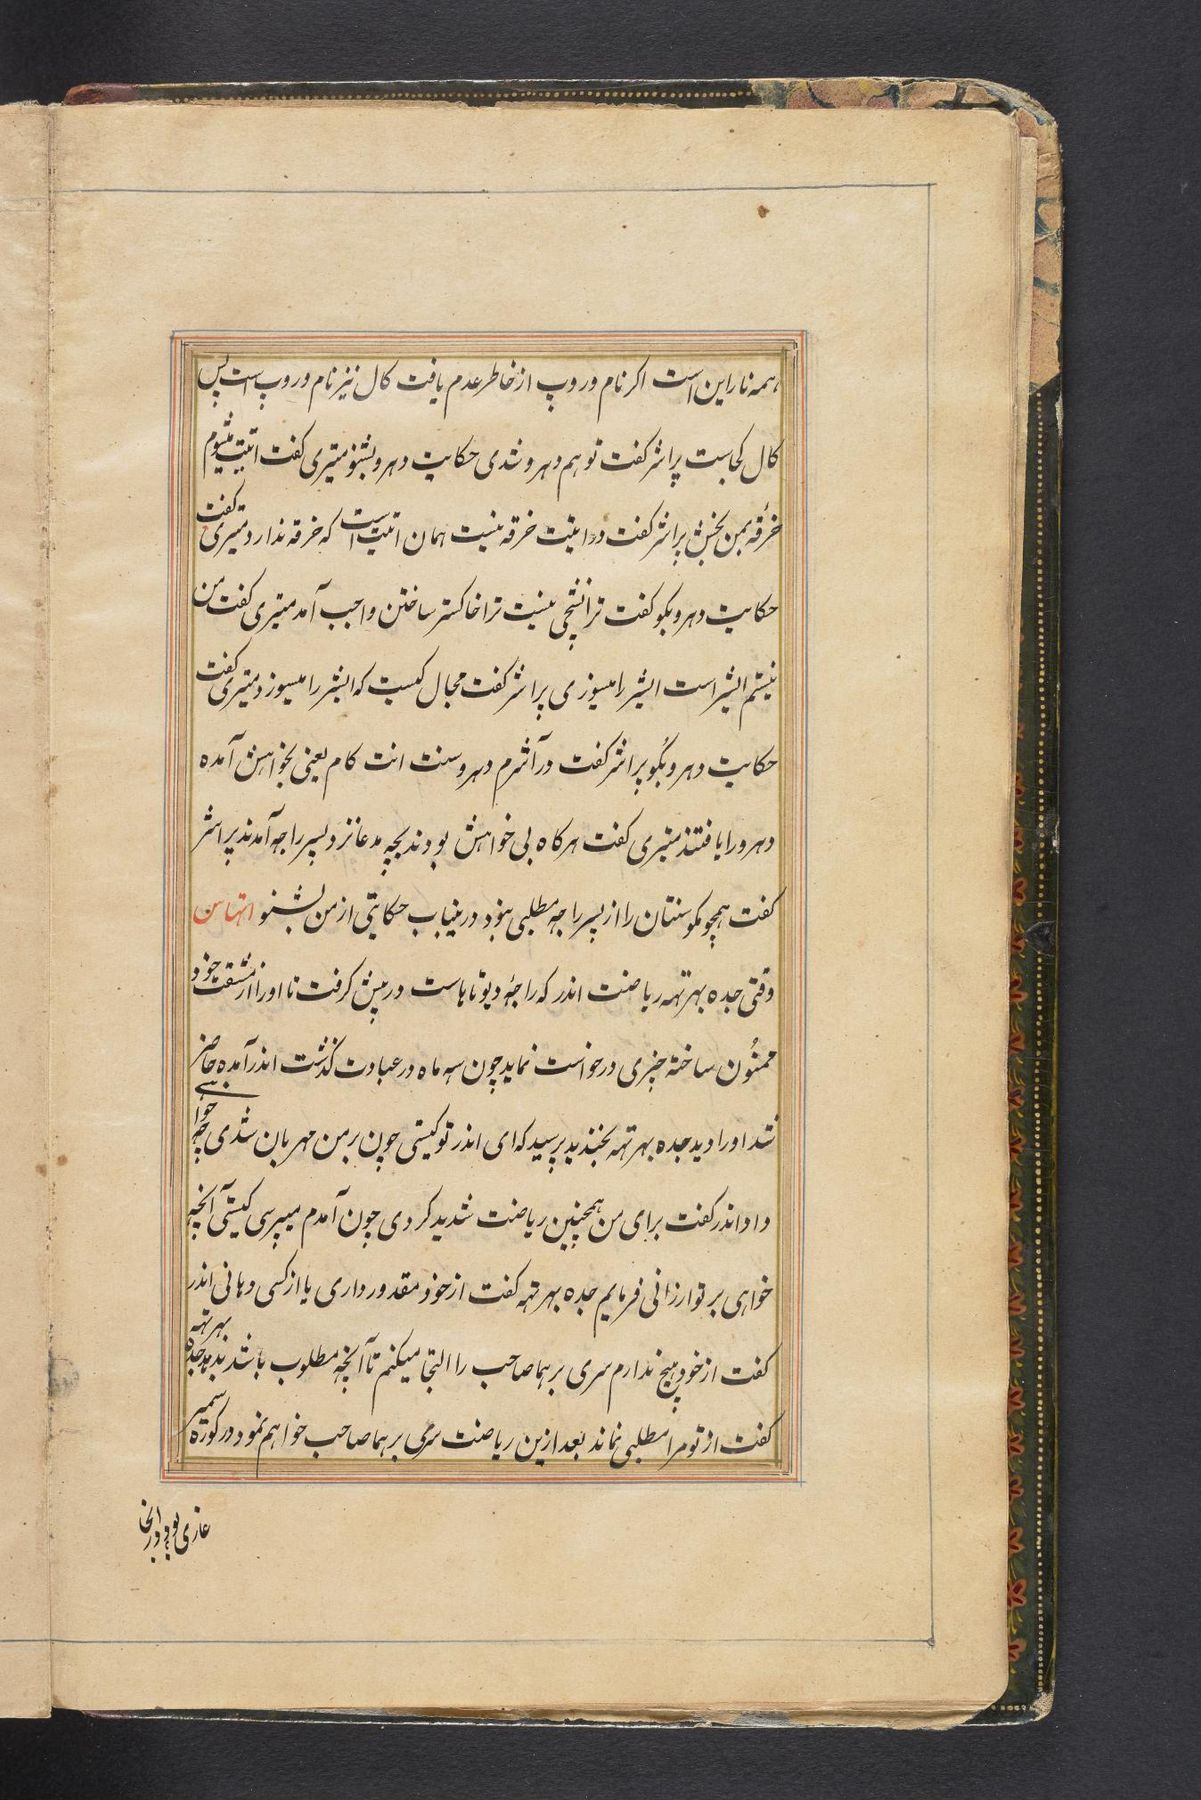 همه ناراین است اکر نام و روپ از خاطر عدم یافت کال نیز نام و روپ است پس
کال کجاست پراشر کفت تو هم دهرو شدی حکایت دهرو بشنو میتری کفت اتیت میشوم
خرقه بمن بخش پراشر کفت در اتیت خرقه نیست همان اتیت است که خرقه ندارد میتری کفت
حکایت دهرو بکو کفت ترا نشچی نیست ترا خاکستر ساختن واجب آمد میتری کفت من
نیستم ایشر است ایشر را میسوزی پراشر کفت مجال کیست که ایشر را میسوزد میتری کفت
حکایت دهرو بکو پراشر کفت در آشرم دهرو سنت انت کام یعنی بخواهش آمده
دهرو را یافتند میتری کفت هرکاه بی خواهش بودند بچه مدعا نزد پسر راجه آمدند پراشر
کفت همچو مکو سنتان را از پسر راجه مطلبی نبود درینباب حکایتی از من بشنو اتهاسن
وقتی جده بهرتهه ریاضت اندر که راجهٔ دیوتاهاست در پیش کرفت تا او را از مشقت خود
ممنون ساخته چیزی درخواست نماید چون سه ماه در عبادت کذشت اندر آمده حاضر
شد او را دید جده بهرتهه بخندید پرسید که ای اندر تو کیستی چون بر من مهربان شدی چه خواهی
داد اندر کفت برای من همچنین ریاضت شدید کردی چون آمدم میپرسی کیستی آنچه
خواهی بر تو ارزانی فرمایم جده بهرتهه کفت از خود مقدور داری یا از کسی دهانی اندر
کفت از خود هیچ ندارم سری برهما صاحب را التجا میکنم تا آنچه مطلوب باشد بدهد جده بهرتهه
کفت از تو مرا مطلبی نماند بعد ازین ریاضت سری برهما صاحب خواهم نمود در کوزه سمیر
غازی بود در آنجا